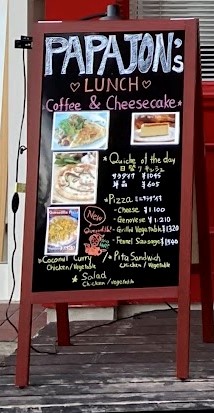 PAPAJON's
♡ LUNCH ♡
Coffee & Cheesecake
Quiche of the day
¥1045
単品 ¥605
Pizza
- Cheese ¥1.100
- Genovese ¥1.210
- Grilled Vegetable ¥1320
- Fennel Sausage ¥1540
New
Quesadilla
Coconut Curry
Chicken/Vegetable
Pita Sandwich
Chicken/Vegetable
Salad
Chicken/vegetable